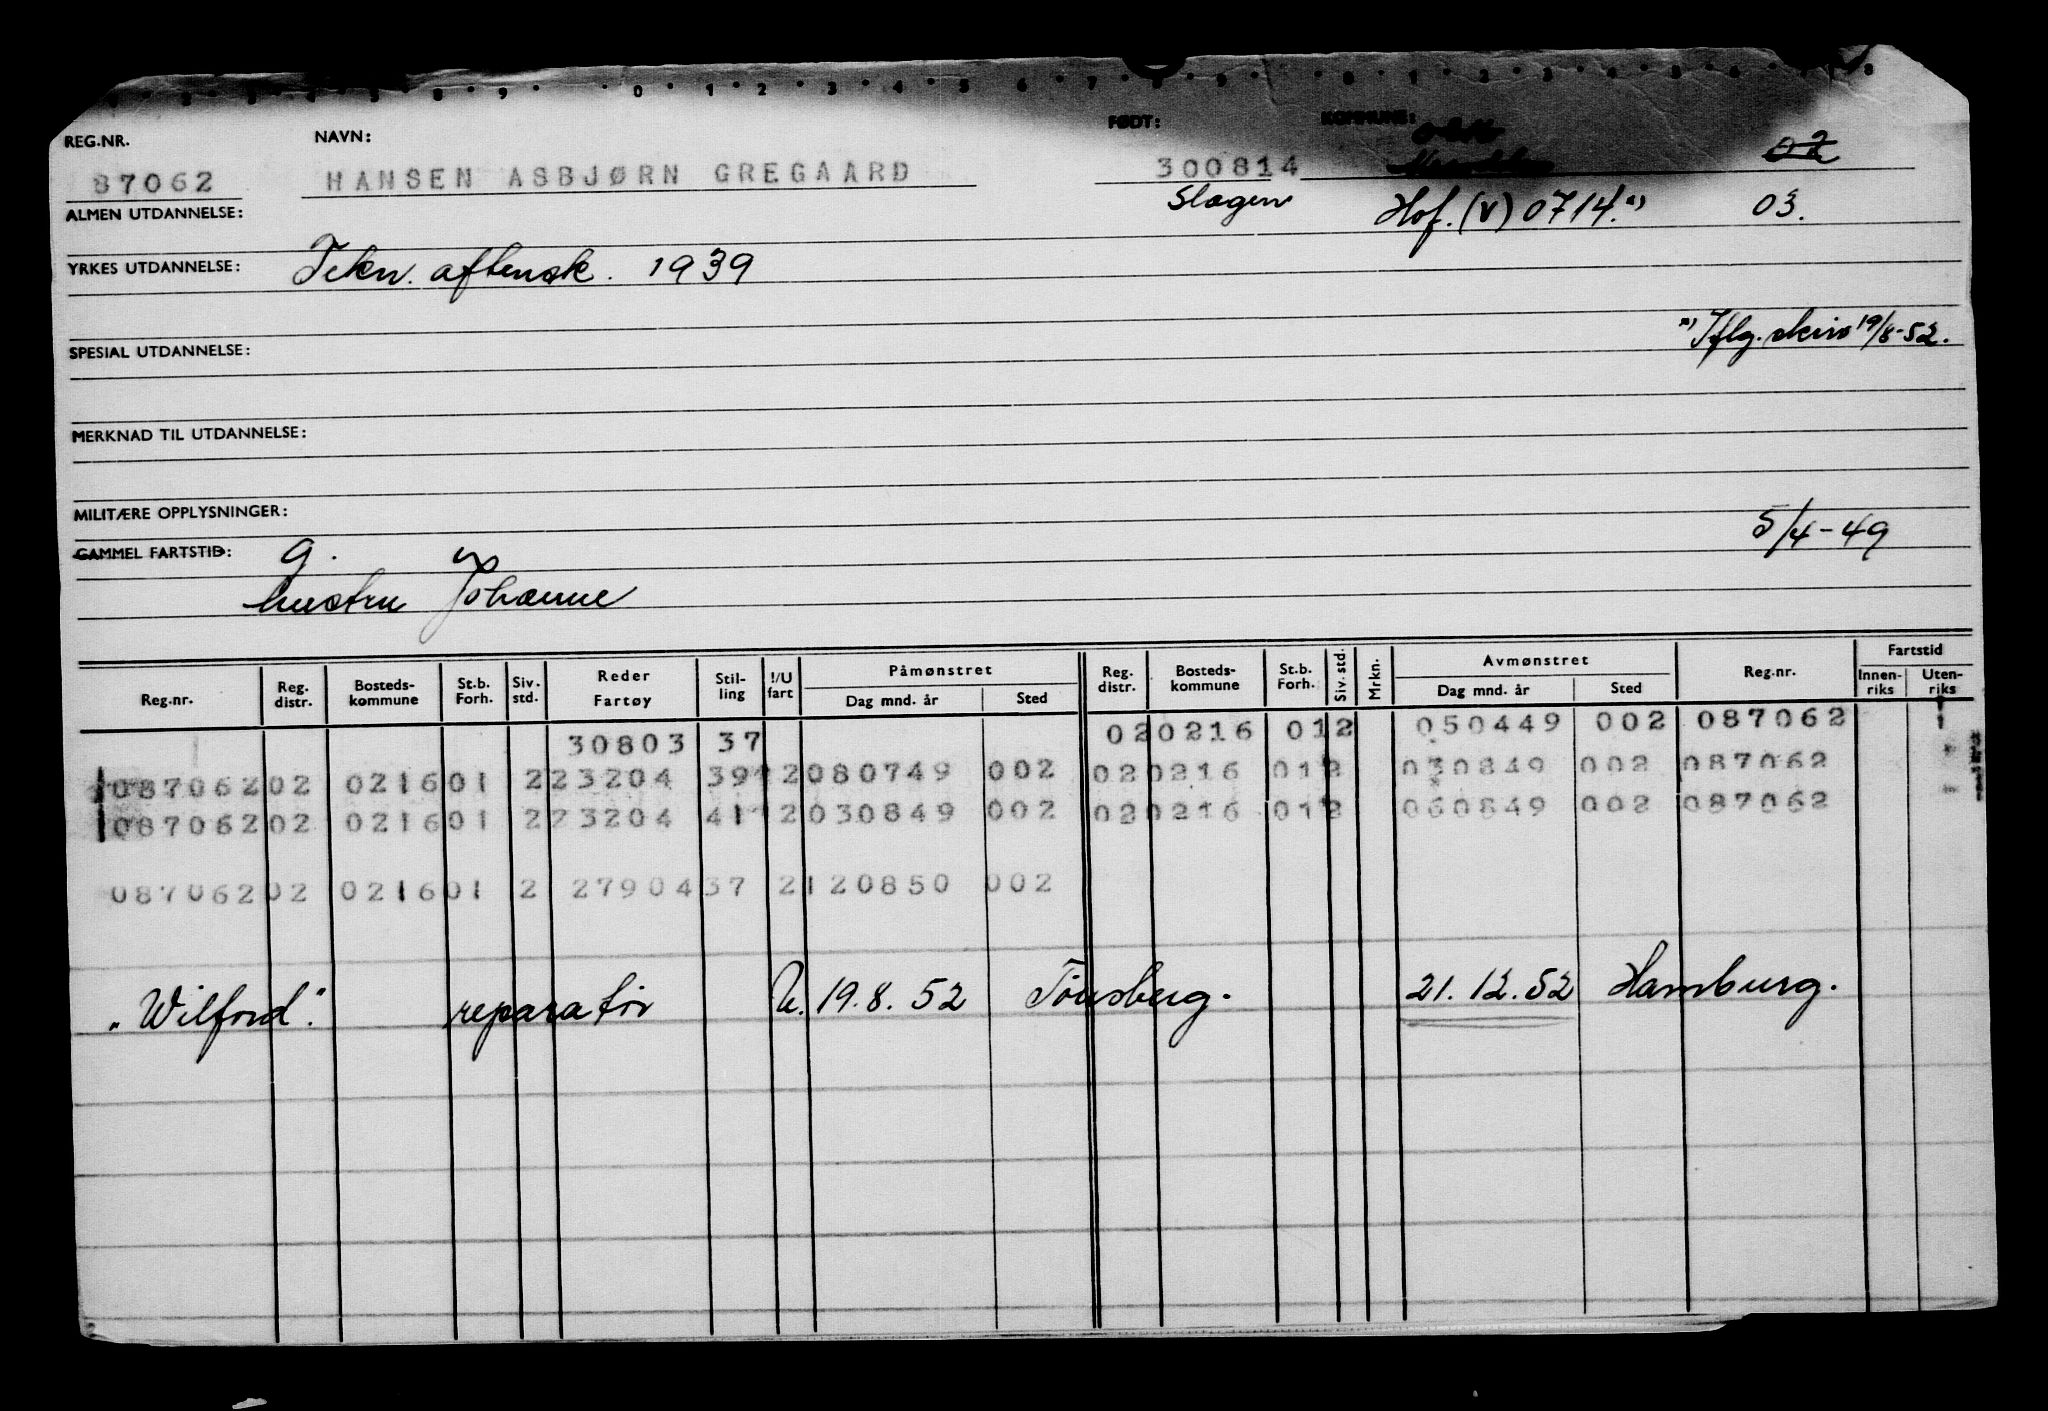 REG.NR. NAVN: FØDT: KOMMUNE:
87062 HANSEN ASBJØRN GREGAARD 300814 02
ALMEN UTDANNELSE: Slagen Hof. (V) 0714. 03.
YRKES UTDANNELSE: Tekn. aftensk. 1939
Iflg. skriv 19/8-52.
SPESIAL UTDANNELSE:
MERKNAD TIL UTDANNELSE:
MILITÆRE OPPLYSNINGER: 5/4-49
GAMMEL FARTSTID: g.
hustru Johanne
Reg.nr. Reg. distr. Bosteds-kommune St.b. Forh. Siv. std. Reder Fartøy Stil-ling I/U fart Påmønstret Dag mnd. år Sted Reg. distr. Bosteds-kommune St.b. Forh. Siv. std. Mrkn. Avmønstret Dag mnd. år Sted Reg.nr. Fartstid Innen-riks Uten-riks
30803 37 02 0216 01 2 050449 002 087062
087062 02 0216 01 2 23204 39 2 080749 002 02 0216 01 2 030849 002 087062
087062 02 0216 01 2 23204 41 2 030849 002 02 0216 01 2 060849 002 087062
087062 02 0216 01 2 27904 37 2 120850 002
"Wilford". reparatør U. 19.8.52 Tönsberg. 21.12.52 Hamburg.